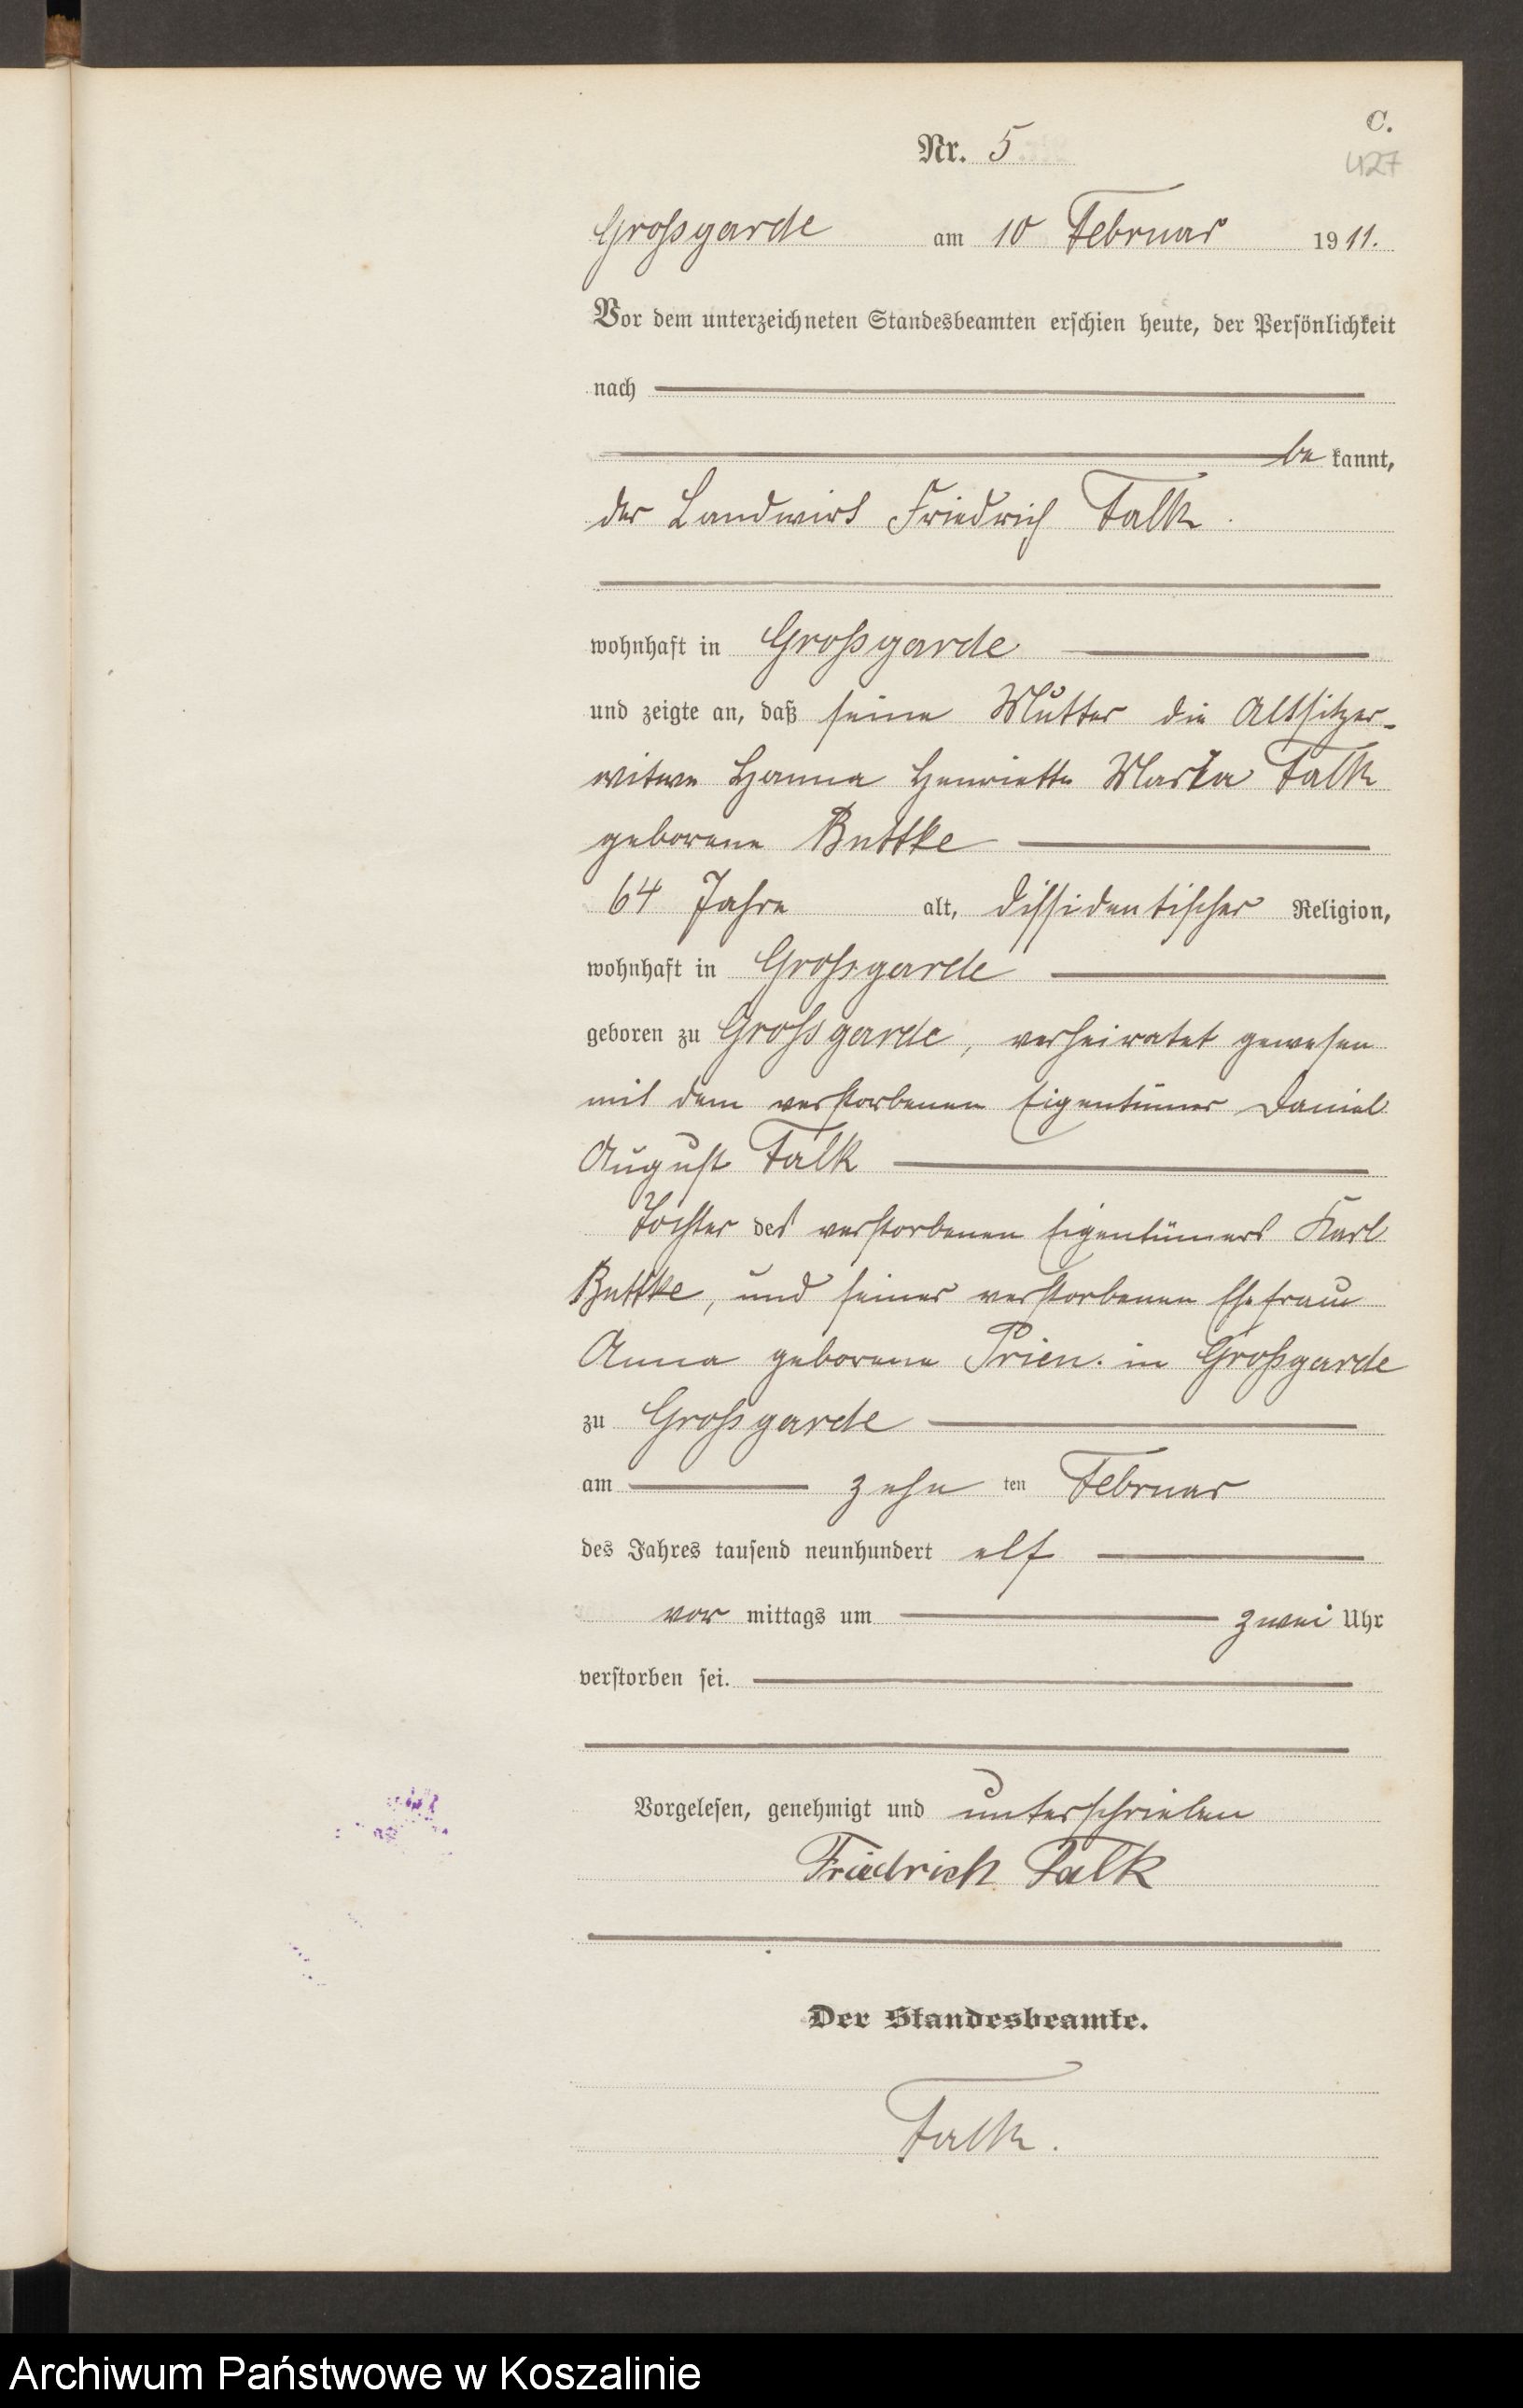 C.
427
Nr. 5
Großgarde am 10 Februar 1911.
Vor dem unterzeichneten Standesbeamten erschien heute, der Persönlichkeit
nach
be kannt,
der Landwirt Friedrich Falk.
wohnhaft in Großgarde
und zeigte an, daß seine Mutter die Altsitzer-
witwe Hanna Henriette Maria Falk
geborene Buttke
64 Jahre alt, dissidentischer Religion,
wohnhaft in Großgarde
geboren zu Großgarde, verheiratet gewesen
mit dem verstorbenen Eigentümer Daniel
August Falk
Tochter des verstorbenen Eigentümers Karl
Buttke, und seiner verstorbenen Ehefrau
Anna geborene Prien. in Großgarde
zu Großgarde
am zehn ten Februar
des Jahres tausend neunhundert elf
vor mittags um zwei Uhr
verstorben sei.
Vorgelesen, genehmigt und unterschrieben
Friedrich Falk
Der Standesbeamte.
Falk.
Archiwum Państwowe w Koszalinie